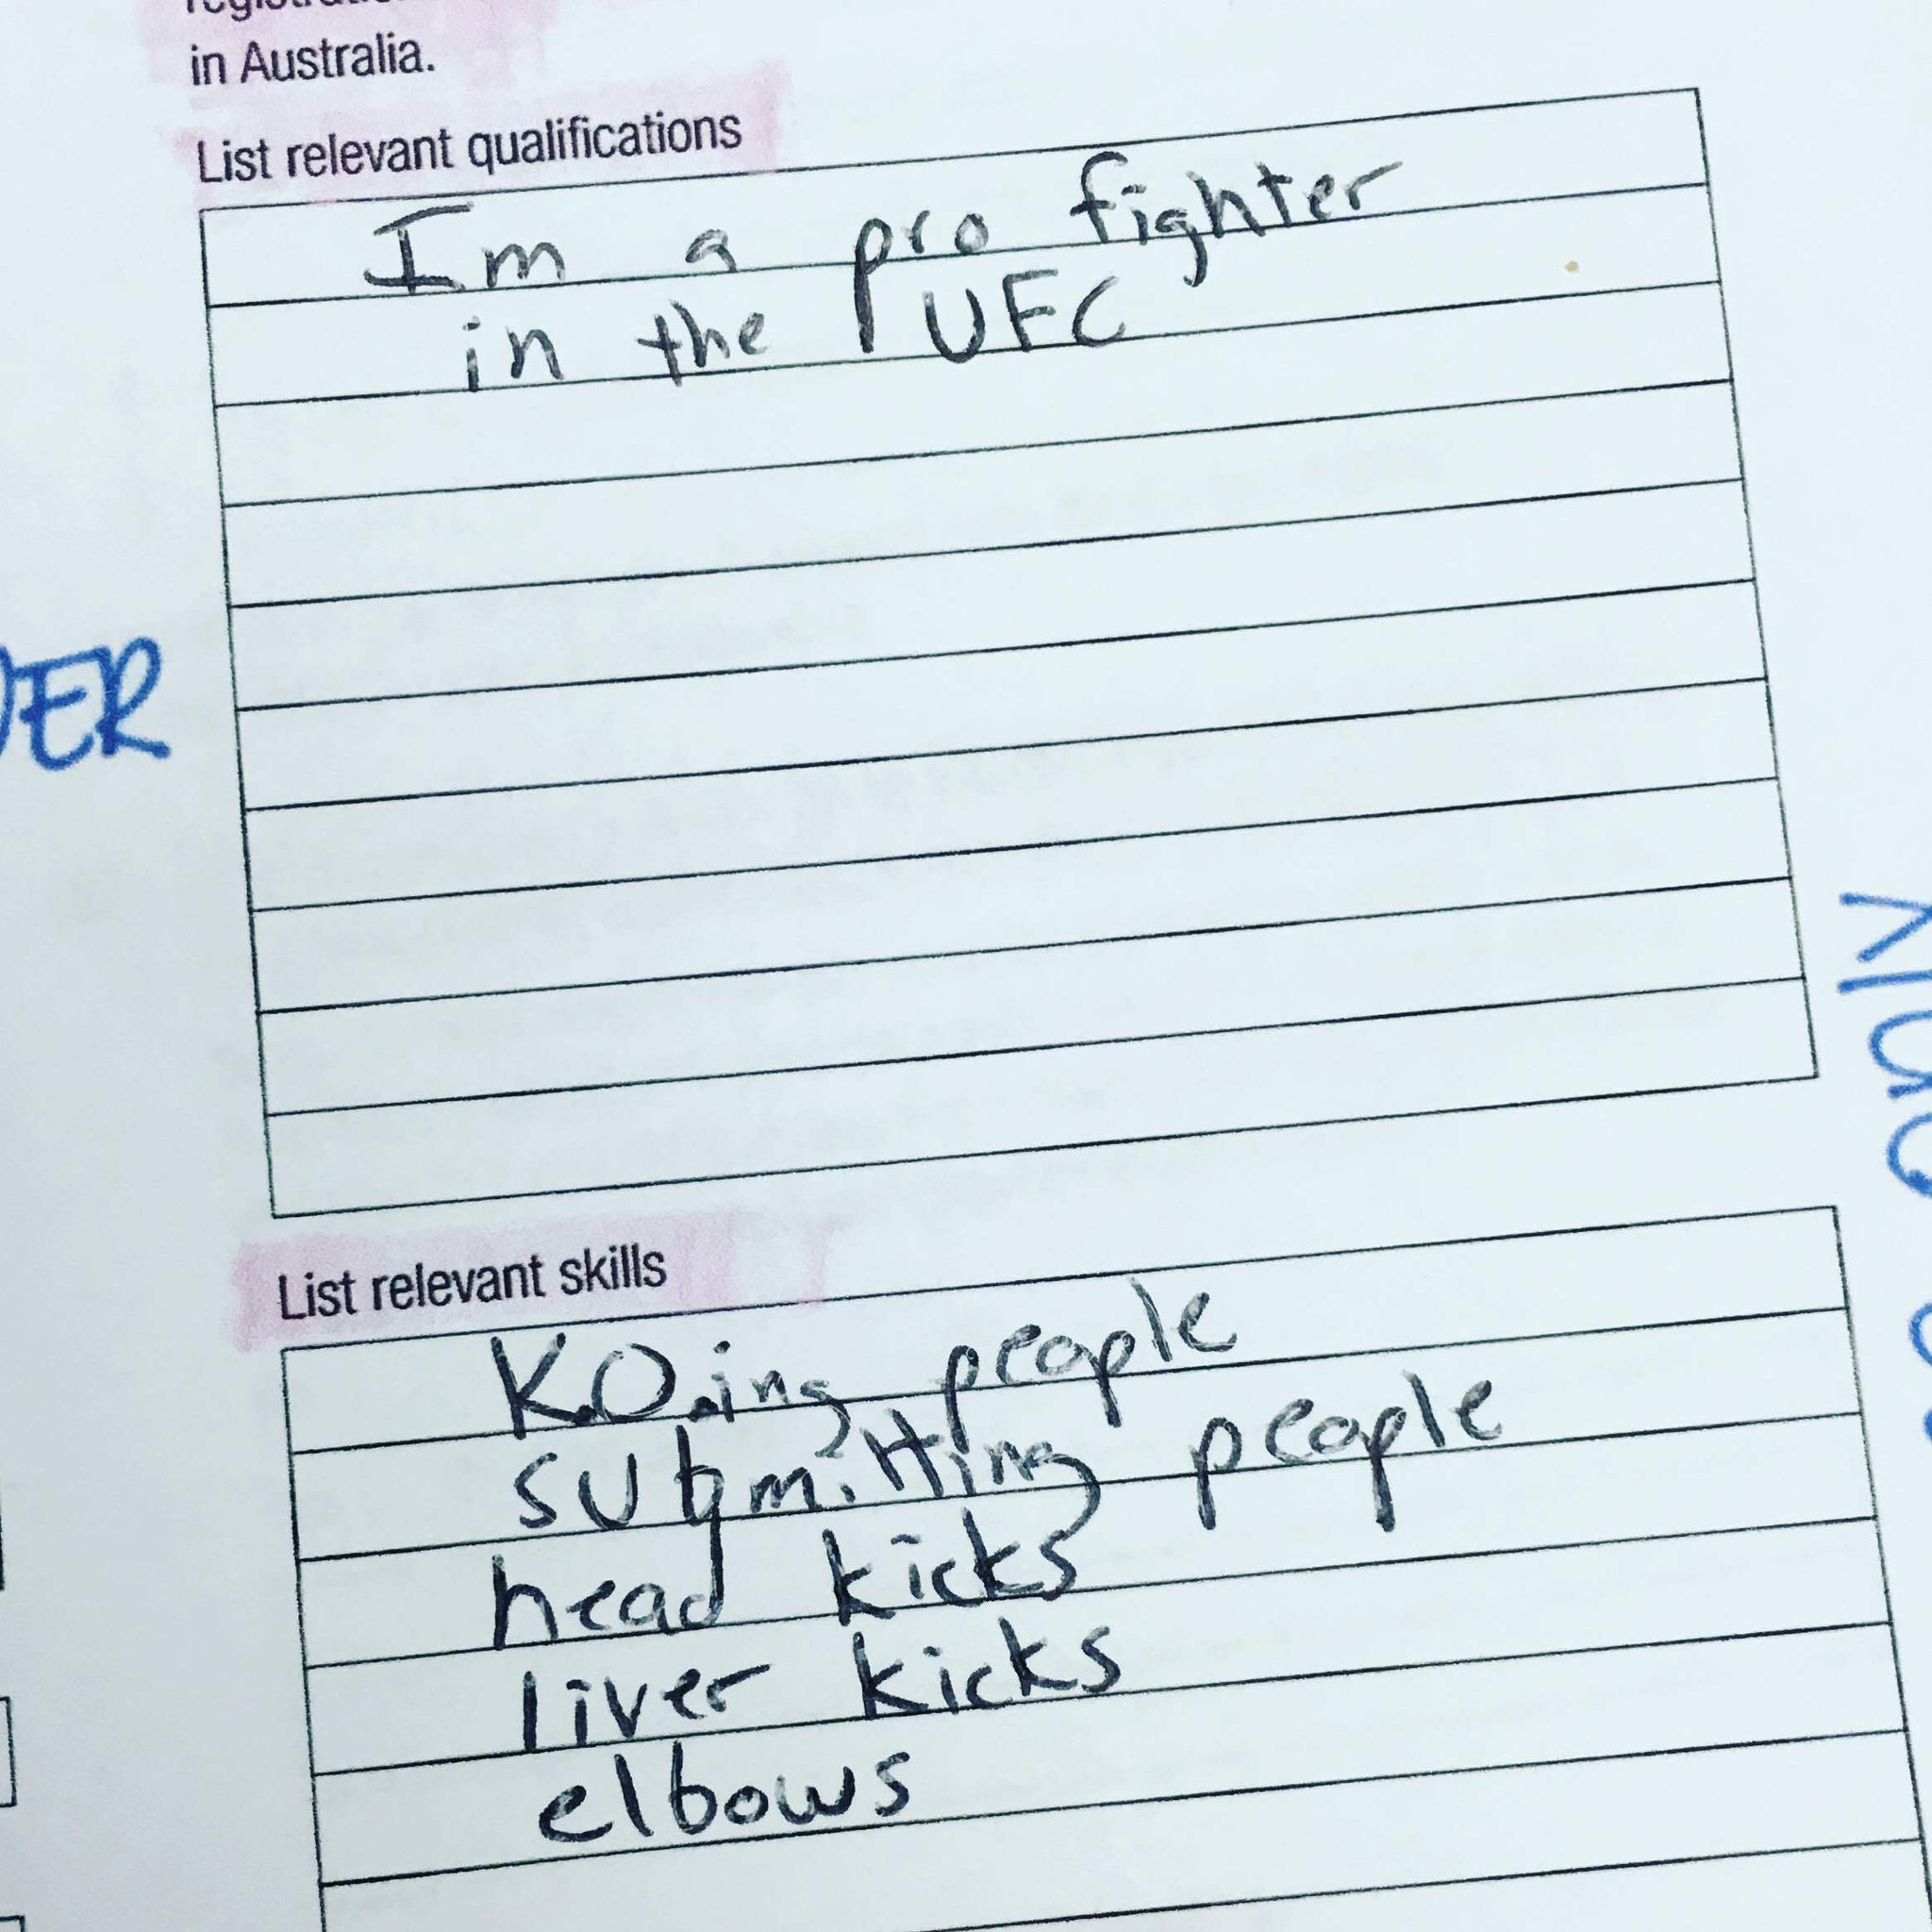 in Australia.
List relevant qualifications
Im a pro fighter
in the UFC
List relevant skills
K.O.ing people
submitting people
head kicks
liver kicks
elbows